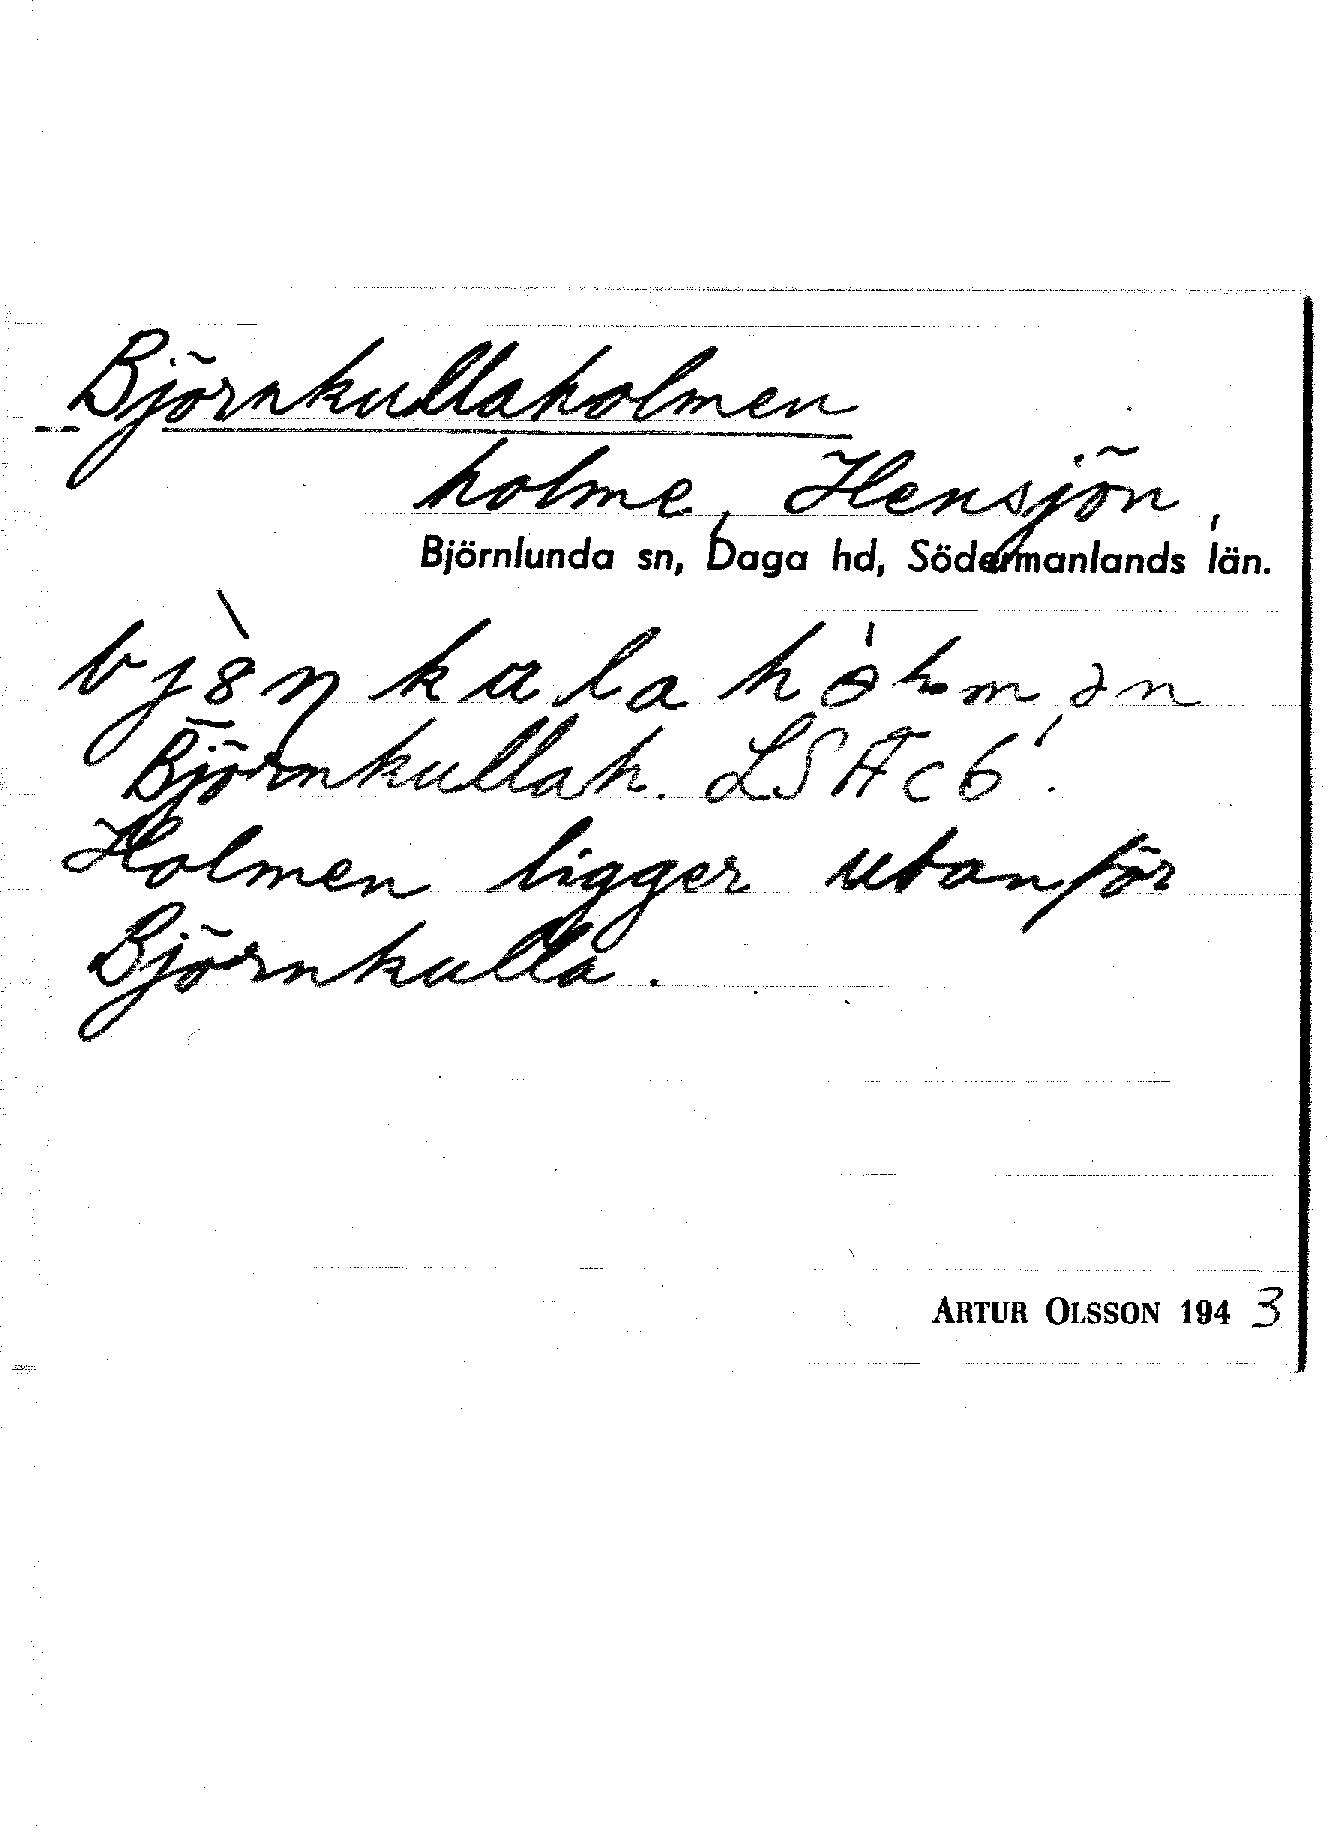 Björnkullaholmen
holme, Hensjön,
Björnlunda sn, Daga hd, Södermanlands län.
Björnkullah. LSÄ c 6!
Holmen ligger utanför
Björnkulla.
ARTUR OLSSON 1943